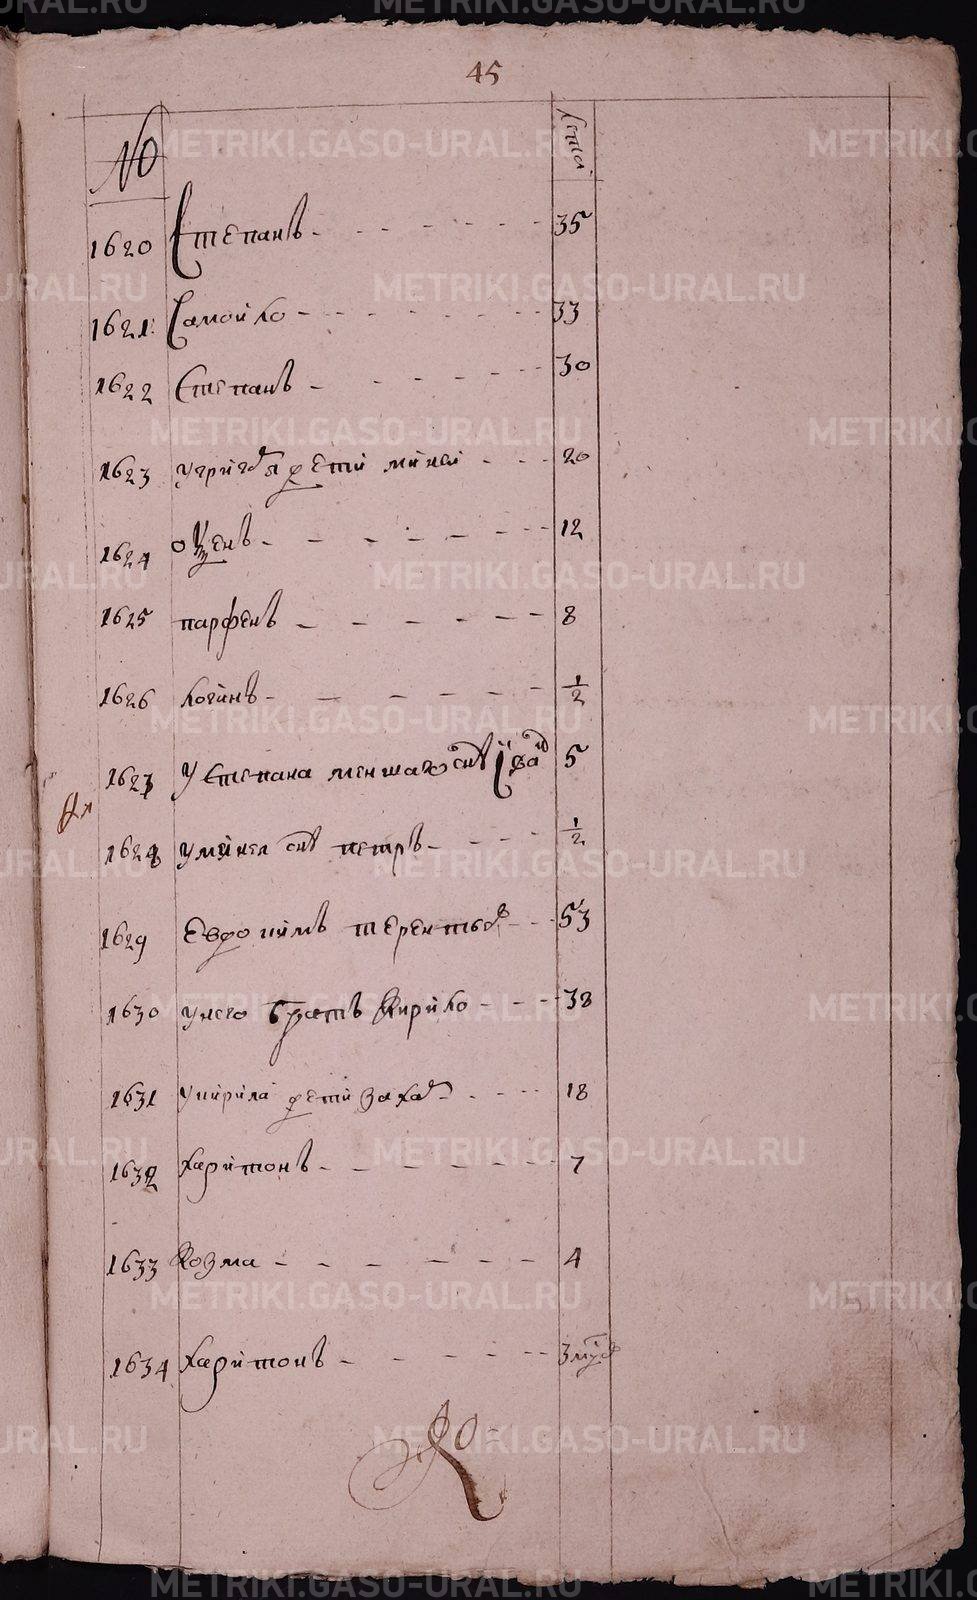 45
№ лета
1620 Степанъ 35
1621 Самойко 33
1622 Степанъ 30
1623 дети миней 20
1624 12
1625 парфенъ 8
1626 логинъ 1/2
1627 У Степана меншаго снъ Iва 5
1628 У минея снъ петръ 1/2
1629 Ефоимъ терентьев 53
1630 у него братъ Кирило 38
1631 У кирила дети Захар 18
1632 харитонъ 7
1633 Козма 4
1634 харитонъ 3
METRIKI.GASO-URAL.RU